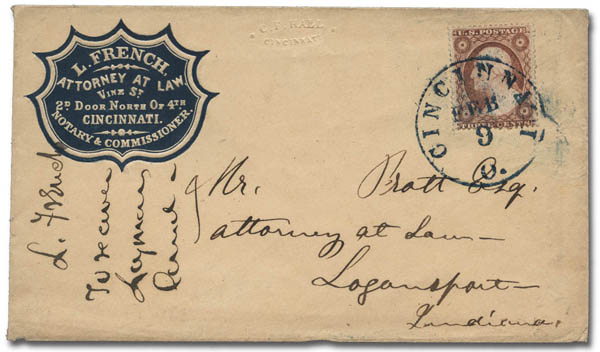 L. FRENCH.
ATTORNEY AT LAW
VINE ST.
2D DOOR NORTH OF 4TH
CINCINNATI.
NOTARY & COMMISSIONER.
CINCINNATI
U.S. POSTAGE
CINCINNATI
FEB
9
O.
L. French
To receive
Mr. Pratt Esq.
attorney at Law
Logansport
Indiana